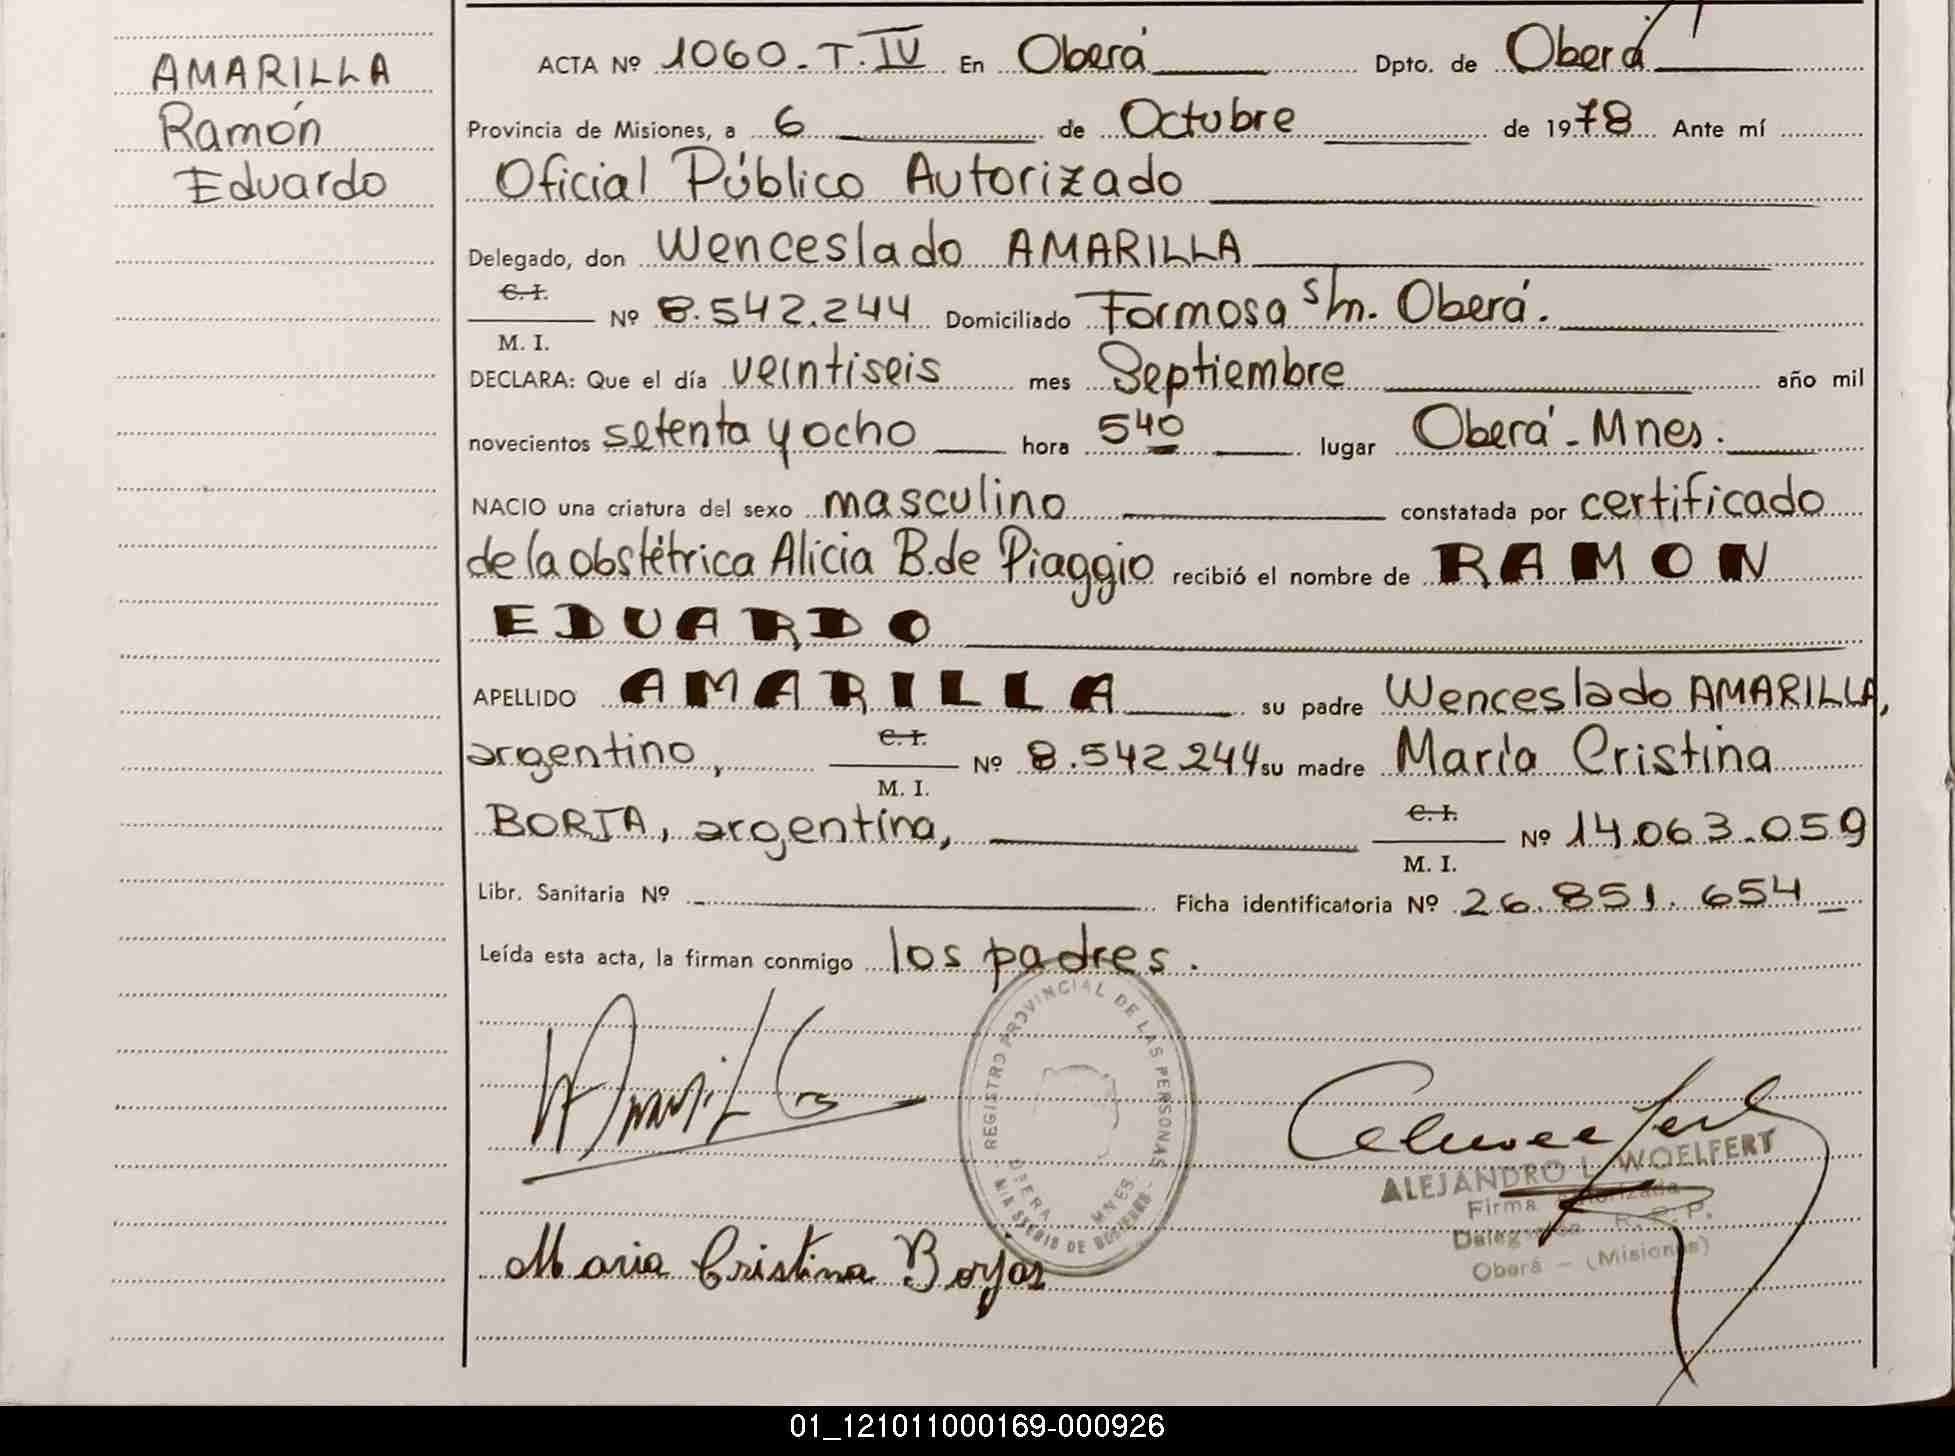 AMARILLA
Ramón
Eduardo
ACTA Nº 1060-T.IV En Oberá Dpto. de Oberá
Provincia de Misiones, a 6 de Octubre de 1978 Ante mí
Oficial Público Autorizado
Delegado, don Wenceslado AMARILLA
C.I.
M. I. Nº 8.542.244 Domiciliado Formosa s/n. Oberá.
DECLARA: Que el día veintiseis mes Septiembre año mil
novecientos setenta y ocho hora 5 40 lugar Oberá - Mnes.
NACIO una criatura del sexo masculino constatada por certificado
de la obstétrica Alicia B. de Piaggio recibió el nombre de RAMON
EDUARDO
APELLIDO AMARILLA su padre Wenceslado AMARILLA,
argentino, C.I. M. I. Nº 8.542.244 su madre María Cristina
BORJA, argentina, C.I. M. I. Nº 14.063.059
Libr. Sanitaria Nº Ficha identificatoria Nº 26.851.654
Leída esta acta, la firman conmigo los padres.
REGISTRO PROVINCIAL DE LAS PERSONAS
OBERA - MNES.
MINISTERIO DE GOBIERNO
ALEJANDRO L. WOELFERT
Firma Autorizada
Delegación R. P. P.
Oberá - (Misiones)
Maria Cristina Borjas
01_121011000169-000926